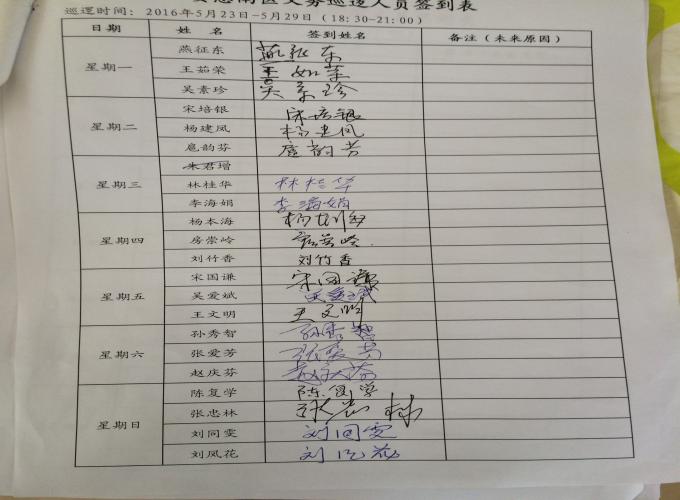 南区义务巡逻人员签到表
巡逻时间：2016年5月23日-5月29日（18:30-21:00）
日期 姓名 签到姓名 备注（未来原因）
星期一 燕征东 燕征东
王茹荣 王如荣
吴素珍 吴素珍
星期二 宋培银 宋培银
杨建凤 杨建凤
扈韵芬 扈韵芳
星期三 朱君增
林桂华 林桂华
李海娟 李海娟
星期四 杨本海 杨本海
房崇岭 房崇岭
刘竹香 刘竹香
星期五 宋国谦 宋国谦
吴爱斌 吴爱斌
王文明 王文明
星期六 孙秀智 孙秀智
张爱芳 张爱芳
赵庆芬 赵庆芬
星期日 陈复学 陈复学
张忠林 张忠林
刘同雯 刘同雯
刘凤花 刘凤花